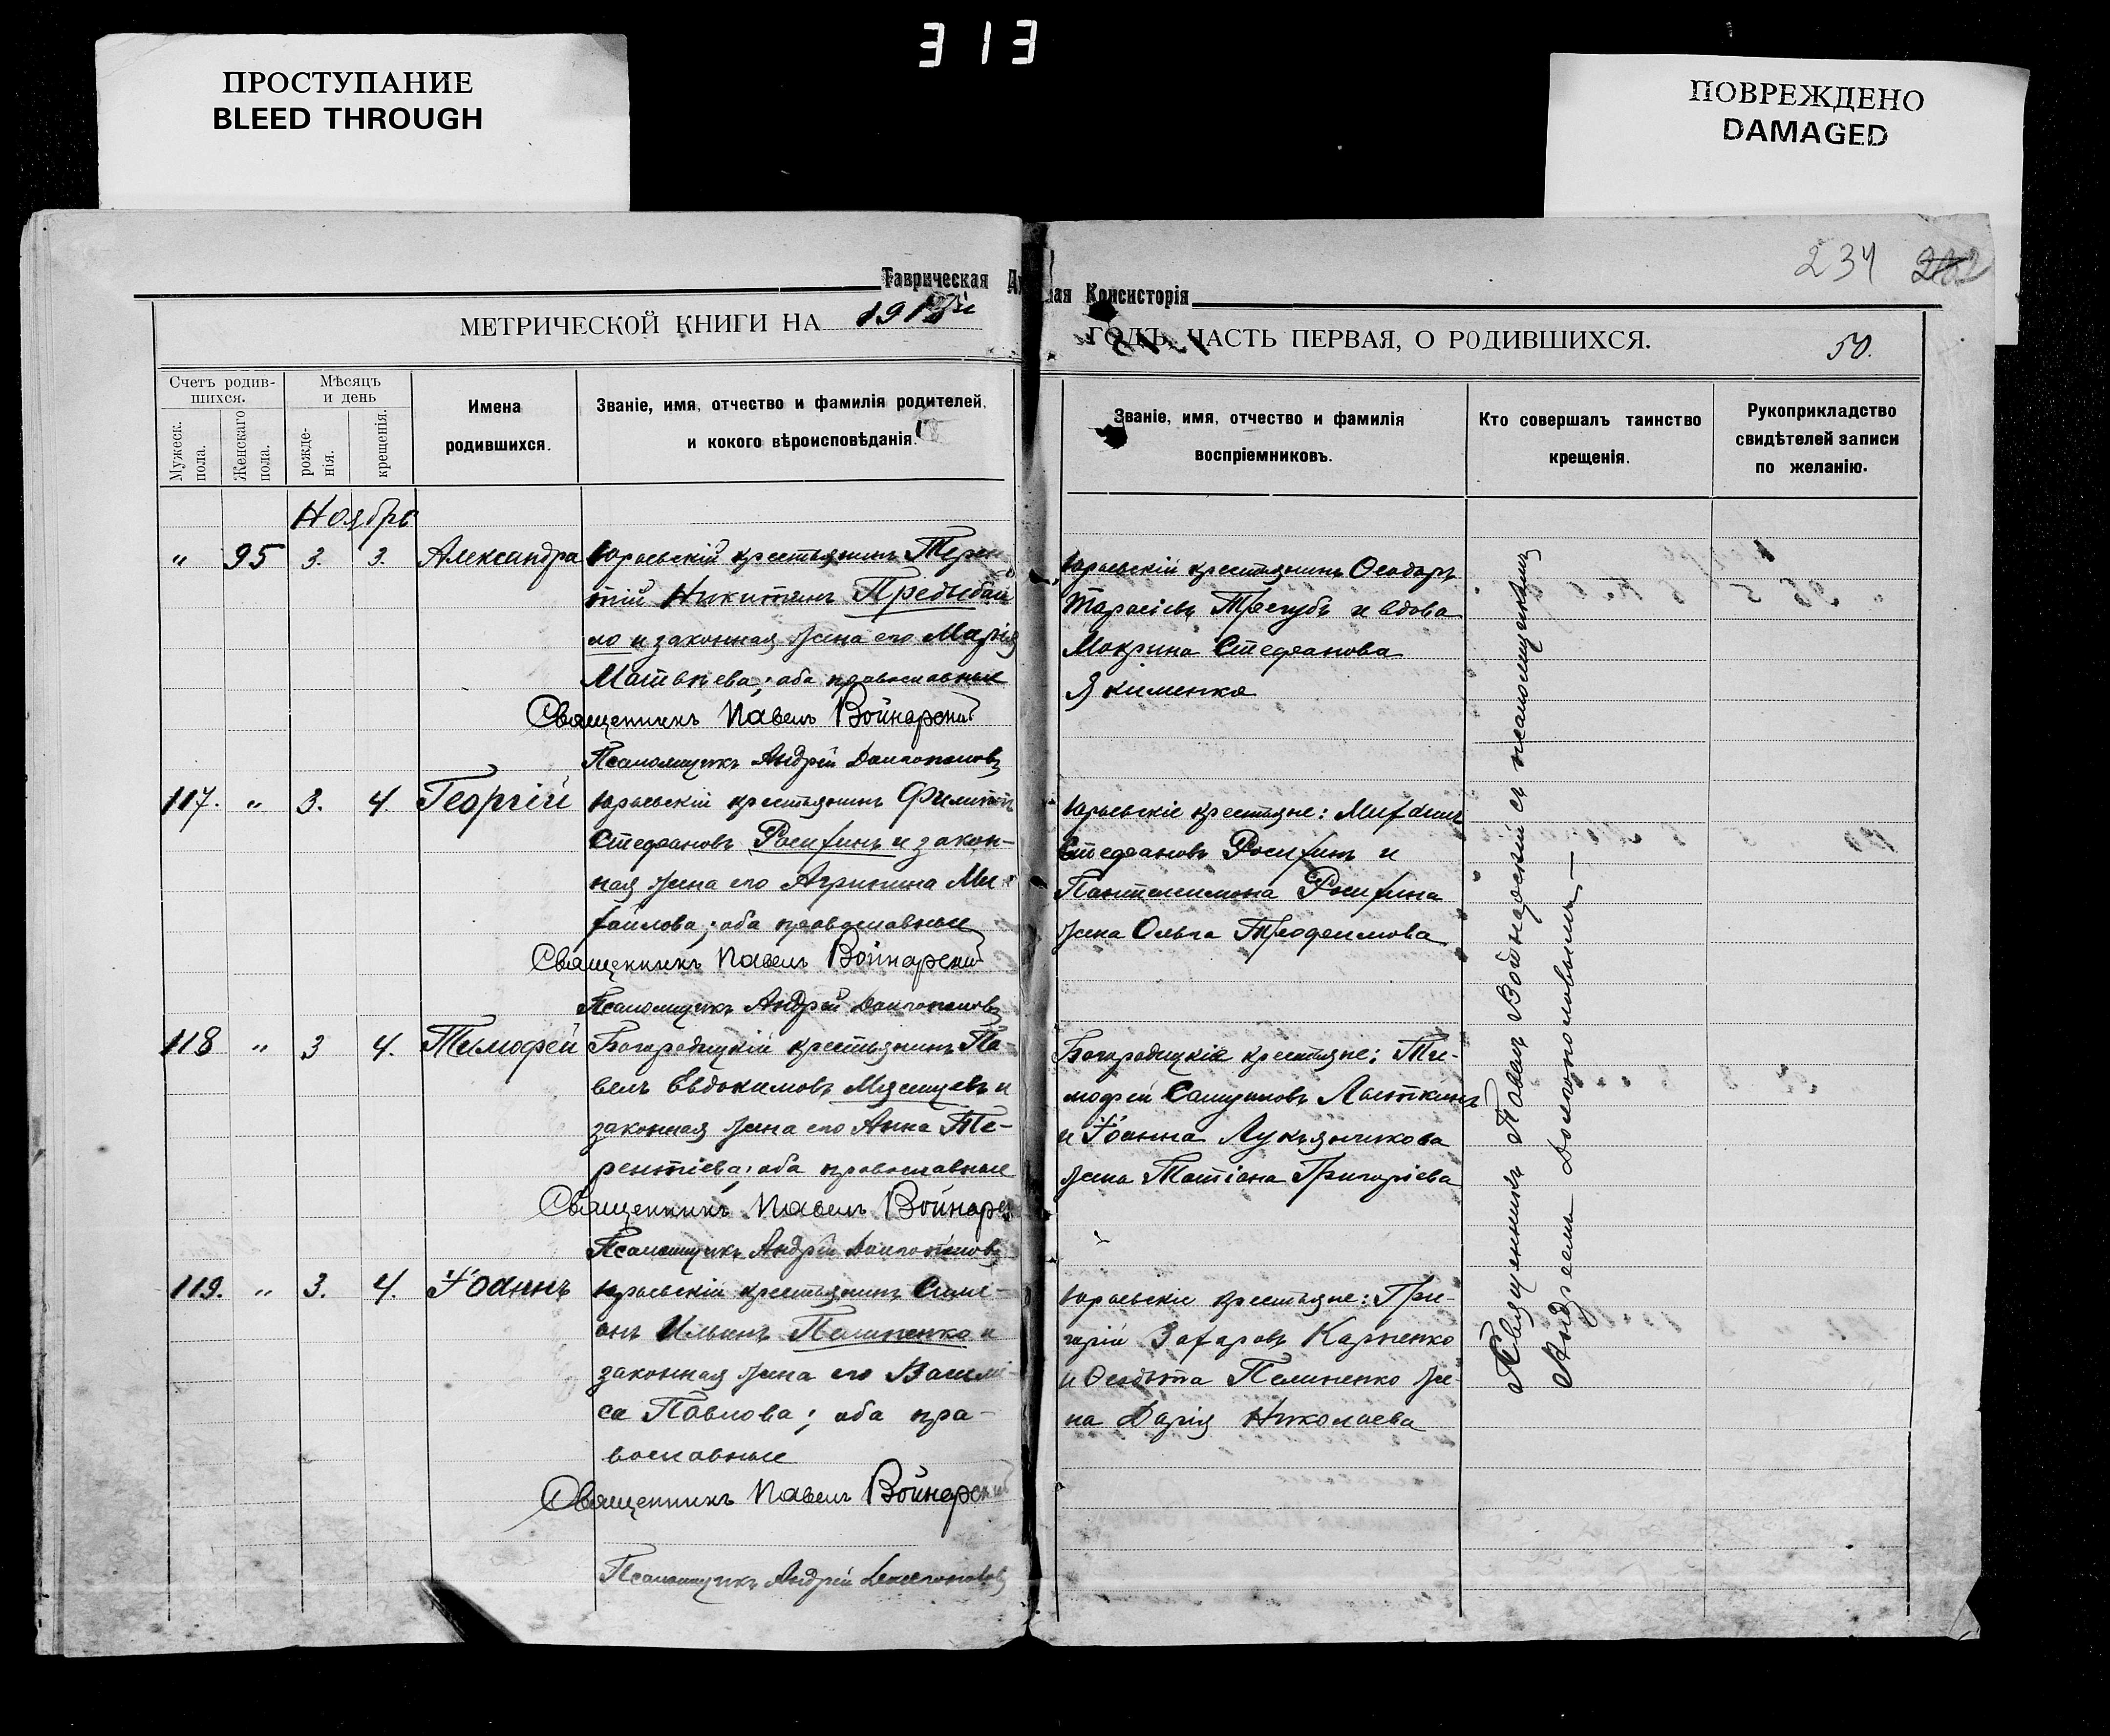 313
ПРОСТУПАНИЕ
BLEED THROUGH
ПОВРЕЖДЕНО
DAMAGED
234
Таврическая Ду
ная Консисторія
МЕТРИЧЕСКОЙ КНИГИ НА
ГОДЪ, ЧАСТЬ ПЕРВАЯ, О РОДИВШИХСЯ.
50.
Счетъ родив-
шихся.
Мужеск.
пола.
Женскаго
пола.
Мѣсяцъ
и день
рожде-
нія.
крещенія.
Имена
родившихся.
Званіе, имя, отчество и фамилія родителей,
и кокого вѣроисповѣданія.
Званіе, имя, отчество и фамилія
воспріемниковъ.
Кто совершалъ таинство
крещенія.
Рукоприкладство
свидѣтелей записи
по желанію.
Ноябрь
" 95 3. 3. Александра
Юрьевскій крестьянинъ Терен
тій Никитинъ Предыбай
ло и законная жена его Марія
Матвѣева; оба православные
Священникъ Павелъ Войнарскій
Псаломщикъ Андрей Долгополовъ
Юрьевскій крестьянинъ Ѳеодоръ
Тарасіевъ Трегубъ и вдова
Макрина Стефанова
Якименко
117. " 3. 4. Георгій
Юрьевскій крестьянинъ Филиппъ
Стефановъ Росихинъ и закон-
ная жена его Агрипина Ми
хайлова; оба православные
Священникъ Павелъ Войнарскій
Псаломщикъ Андрей Долгополовъ
Юрьевскіе крестьяне: Михаилъ
Стефановъ Росихинъ и
Пантелимона Росихина
жена Ольга Трофимова
118 " 3 4. Тимофей
Богородицкій крестьянинъ Па-
велъ Евдокимовъ Мясищевъ и
законная жена его Анна Те-
рентіева; оба православные
Священникъ Павелъ Войнарс
Псаломщикъ Андрей Долгополовъ
Богородицкіе крестьяне: Ти-
мофей
и Іоанна Лукьянчикова
жена Татіана Григоріева
119. " 3. 4. Іоаннъ
Юрьевскій крестьянинъ Симе-
онъ Ильинъ Пелипенко и
законная жена его Васили-
са Павлова; оба пра-
вославные
Священникъ Павелъ Войнарскій
Псаломщикъ Андрей Долгополовъ
Юрьевскіе крестьяне: Гри-
горій Захаровъ Карпенко
и Ѳеодота Пелипенко же-
на Дарія Николаева
Священникъ Павелъ Войнарскій съ псаломщикомъ
Андреемъ Долгополовымъ